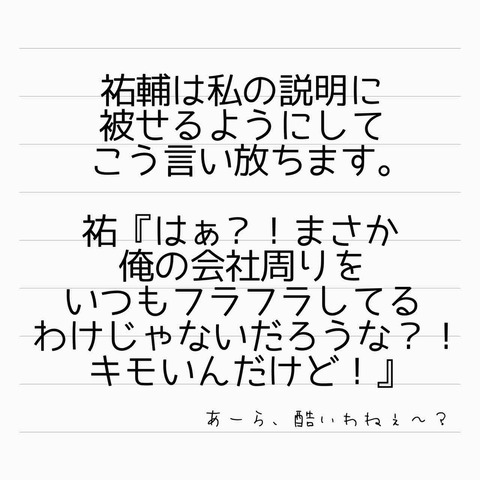 祐輔は私の説明に
被せるようにして
こう言い放ちます。
祐『はぁ？！まさか
俺の会社周りを
いつもフラフラしてる
わけじゃないだろうな？！
キモいんだけど！』
あーら、酷いわねぇ〜？